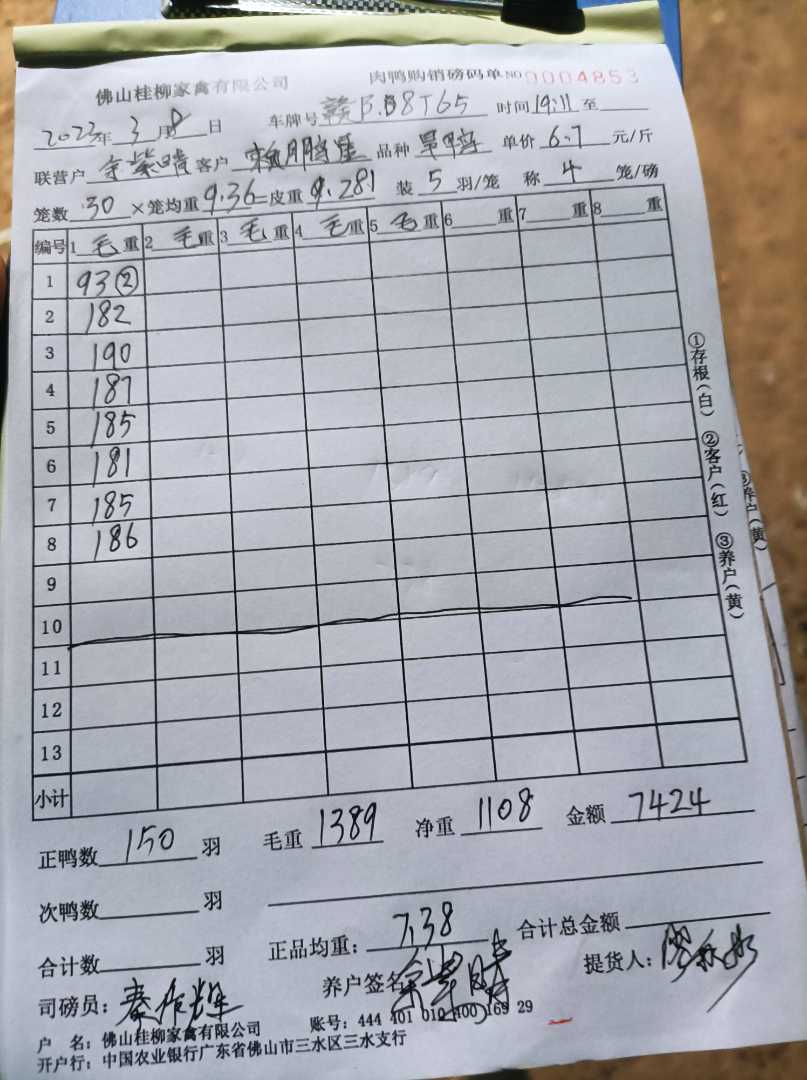 佛山桂柳家禽有限公司 肉鸭购销磅码单 NO 0004853
2023年 3月8日 车牌号 赣B.B8T65 时间 19:11 至
联营户 客户 赖鹏 品种 旱鸭 单价 6.7 元/斤
笼数 30 ×笼均重 9.36 =皮重 9.281 装 5 羽/笼 称 4 笼/磅
编号 1 毛 重 2 毛 重 3 毛 重 4 毛 重 5 毛 重 6 重 7 重 8 重
1 93②
2 182
3 190
4 187
5 185
6 181
7 185
8 186
9
10
11
12
13
小计
①存根(白) ②客户(红) ③养户(黄)
③养户(黄)
正鸭数 150 羽 毛重 1389 净重 1108 金额 7424
次鸭数 羽
合计数 羽 正品均重: 7.38 合计总金额
司磅员: 秦 辉 养户签名 提货人:
户 名: 佛山桂柳家禽有限公司 账号: 444 401 010 400 169 29
开户行: 中国农业银行广东省佛山市三水区三水支行